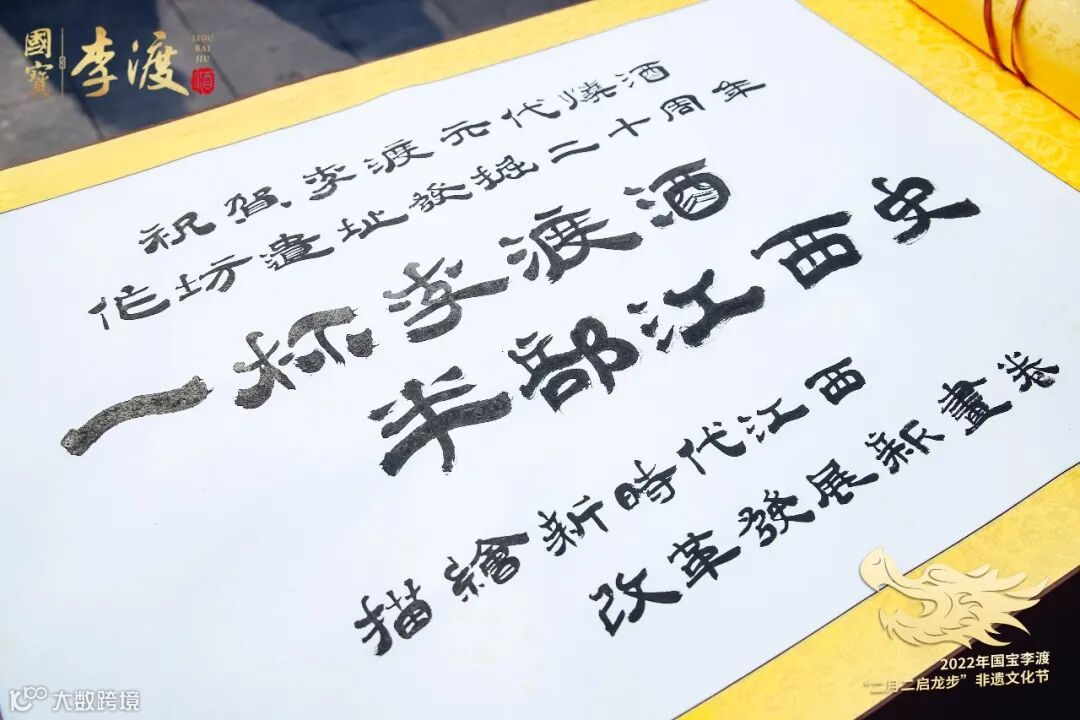 國寶
李渡
LIDU
BAI
JIU
祝賀李渡元代燒酒
作坊遺址發掘二十周年
一杯李渡酒
半部江西史
描繪新時代江西
改革發展新畫卷
2022年国宝李渡
“二月二启龙步”非遗文化节
大数跨境